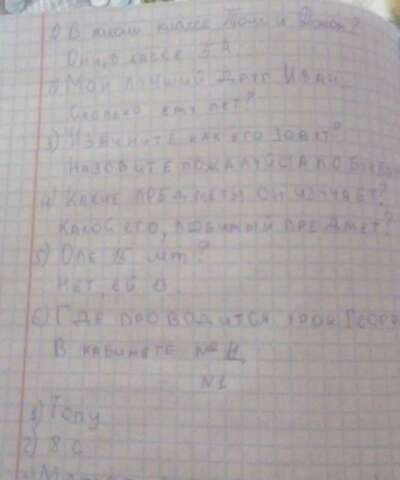 1) В каком классе Том и Джон?
Они, в классе 5 А
2) Мой лучший друг Иван
Сколько ему лет?
3) Извините как его зовут?
Назовите пожалуйста по буквам
4) Какие предметы он изучает?
Какой его, любимый предмет?
5) Оле 15 лет?
Нет, ей 13.
6) Где проводится урок Геогр
В кабинете № 11
N1
1) Тону
2) 8 С